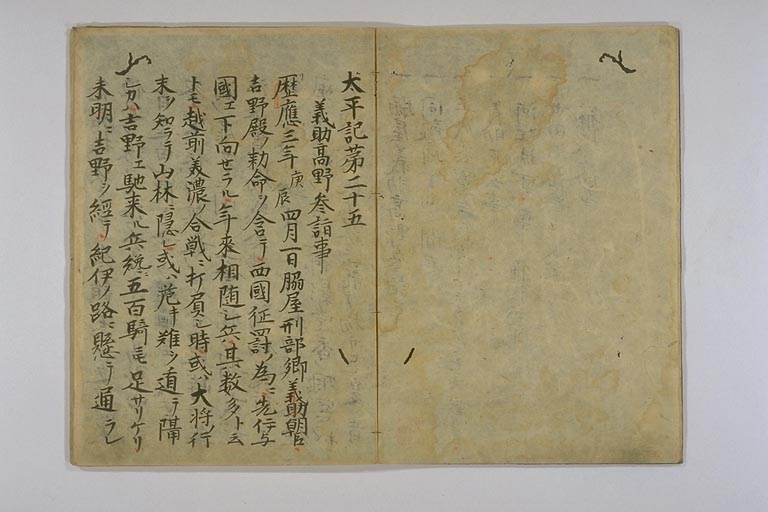 太平記第二十五
義助高野参詣事
暦應三年庚辰四月一日脇屋刑部卿義助朝臣
吉野殿ノ勅命ヲ含テ西國征罸ノ為ニ先伊与
國エ下向セラル年来相随シ兵其数多ト云
トモ越前美濃ノ合戦ニ打負シ時或ハ大将ノ行
末ヲ知ラテ山林ニ隠レ或ハ危キ難ヲ遁テ隔
シカハ吉野エ馳来ル兵纔ニ五百騎ニモ足サリケリ
未明ニ吉野ヲ經テ紀伊ノ路ニ懸テ通ラレ